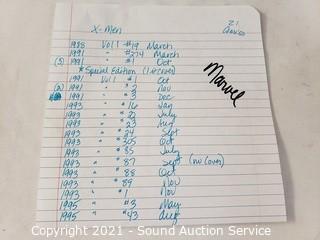 X-Men
21
Comics
Marvel
1988 Vol 1 #19 March
1991 " #274 March
(3) 1991 " #1 Oct
* Special Edition (1 cover)
1991 Vol 1 #1 Oct
(2) 1991 " #2 Nov
1991 " #3 Dec
1993 " #16 Jan
1993 " #22 July
1993 " #23 Aug
1993 " #24 Sept
1993 " #305 Oct
1993 " #35 July
1993 " #87 Sept (no cover)
1993 " #88 Oct
1993 " #89 Nov
1993 " #1 Nov
1995 " #3 May
1995 " #43 Aug
Copyright 2021 - Sound Auction Service